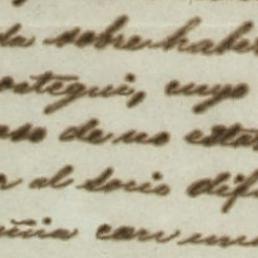 da sobre haber
ostegui, cuyo
oso de no estar
r al socio dif
ñia con un